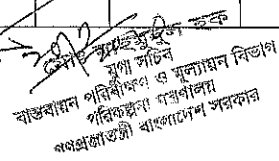 হক
যুগ্ম সচিব
বাস্তবায়ন পরিবীক্ষণ ও মূল্যায়ন বিভাগ
পরিকল্পনা মন্ত্রণালয়
গণপ্রজাতন্ত্রী বাংলাদেশ সরকার